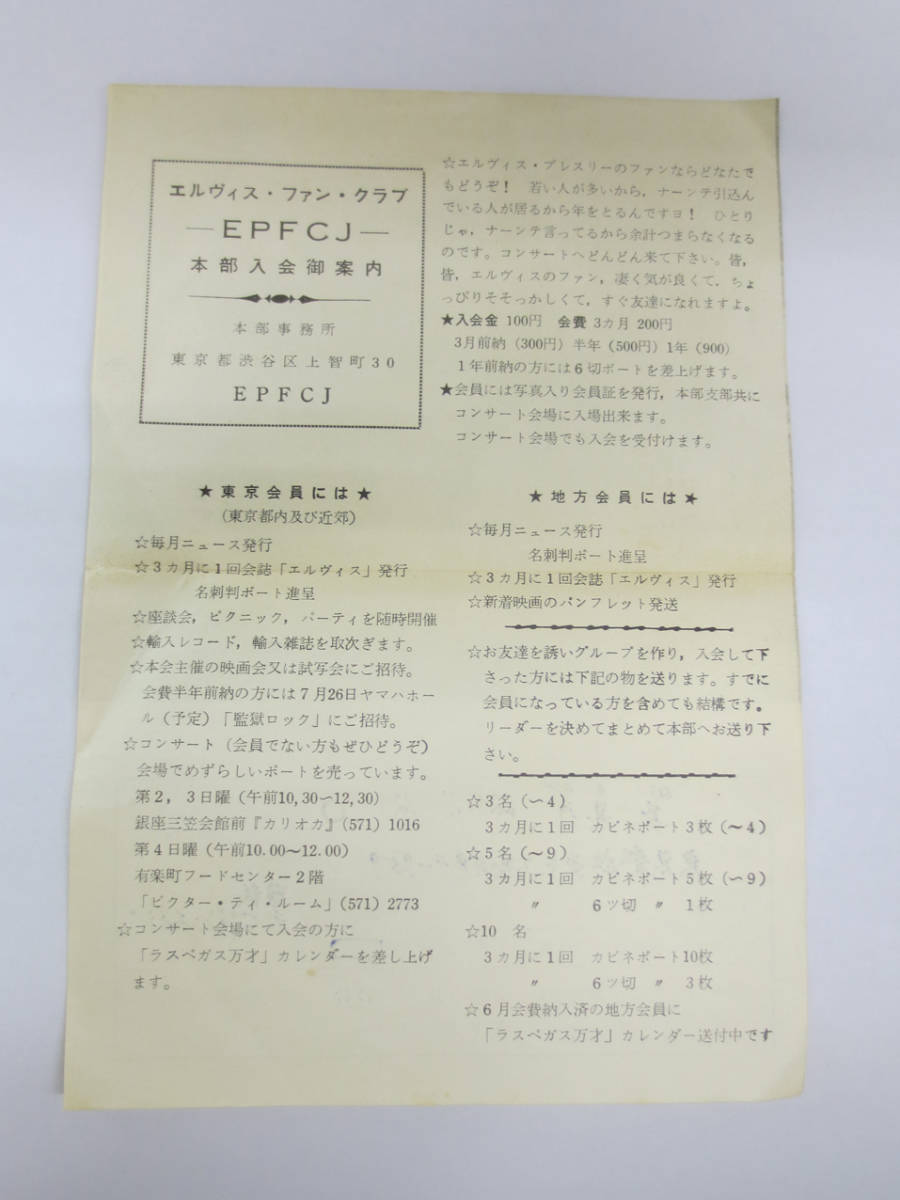 エルヴィス・ファン・クラブ
—EPFCJ—
本部入会御案内
本部事務所
東京都渋谷区上智町30
EPFCJ
☆エルヴィス・プレスリーのファンならどなたで
もどうぞ! 若い人が多いから，ナーンテ引込ん
でいる人が居るから年をとるんですヨ! ひとり
じゃ，ナーンテ言ってるから余計つまらなくなる
のです。コンサートへどんどん来て下さい。皆，
皆，エルヴィスのファン，凄く気が良くて，ちょ
っぴりそそっかしくて，すぐ友達になれますよ。
★入会金 100円 会費 3カ月 200円
3月前納（300円）半年（500円）1年（900）
1年前納の方には6切ポートを差上げます。
★会員には写真入り会員証を発行，本部支部共に
コンサート会場に入場出来ます。
コンサート会場でも入会を受付けます。
★東京会員には★
（東京都内及び近郊）
☆毎月ニュース発行
☆3カ月に1回会誌「エルヴィス」発行
名刺判ポート進呈
☆座談会，ピクニック，パーティを随時開催
☆輸入レコード，輸入雑誌を取次ぎます。
☆本会主催の映画会又は試写会にご招待。
会費半年前納の方には7月26日ヤマハホー
ル（予定）「監獄ロック」にご招待。
☆コンサート（会員でない方もぜひどうぞ）
会場でめずらしいポートを売っています。
第2，3日曜（午前10,30〜12,30）
銀座三笠会館前『カリオカ』(571) 1016
第4日曜（午前10.00〜12.00）
有楽町フードセンター2階
「ビクター・ティ・ルーム」(571) 2773
☆コンサート会場にて入会の方に
「ラスベガス万才」カレンダーを差し上げ
ます。
★地方会員には★
☆毎月ニュース発行
名刺判ポート進呈
☆3カ月に1回会誌「エルヴィス」発行
☆新着映画のパンフレット発送
☆お友達を誘いグループを作り，入会して下
さった方には下記の物を送ります。すでに
会員になっている方を含めても結構です。
リーダーを決めてまとめて本部へお送り下
さい。
☆3名（〜4）
3カ月に1回 カビネポート3枚（〜4）
☆5名（〜9）
3カ月に1回 カビネポート5枚（〜9）
〃 6ツ切 〃 1枚
☆10 名
3カ月に1回 カビネポート10枚
〃 6ツ切 〃 3枚
☆6月会費納入済の地方会員に
「ラスベガス万才」カレンダー送付中です